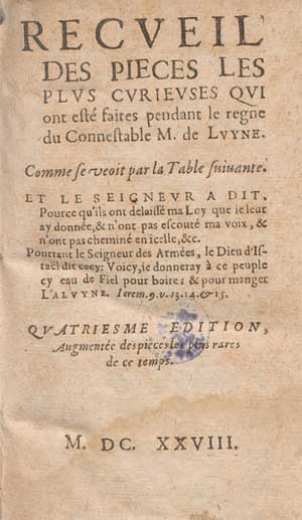 RECVEIL
DES PIECES LES
PLVS CVRIEVSES QVI
ont esté faites pendant le regne
du Connestable M. de LVYNE.
Comme se veoit par la Table suiuante.
ET LE SEIGNEVR A DIT.
Pource qu'ils ont delaissé ma Loy que ie leur
ay donnée, & n'ont pas escouté ma voix, &
n'ont pas cheminé en icelle, &c.
Pourtant le Seigneur des Armées, le Dieu d'Is-
raël dit cecy: Voicy, ie donneray à ce peuple
cy eau de Fiel pour boire: & pour manger
L'ALVYNE. Ierem. 9. v. 13. 14. & 15.
QVATRIESME EDITION,
Augmentée des pieces les plus rares
de ce temps.
M. DC. XXVIII.